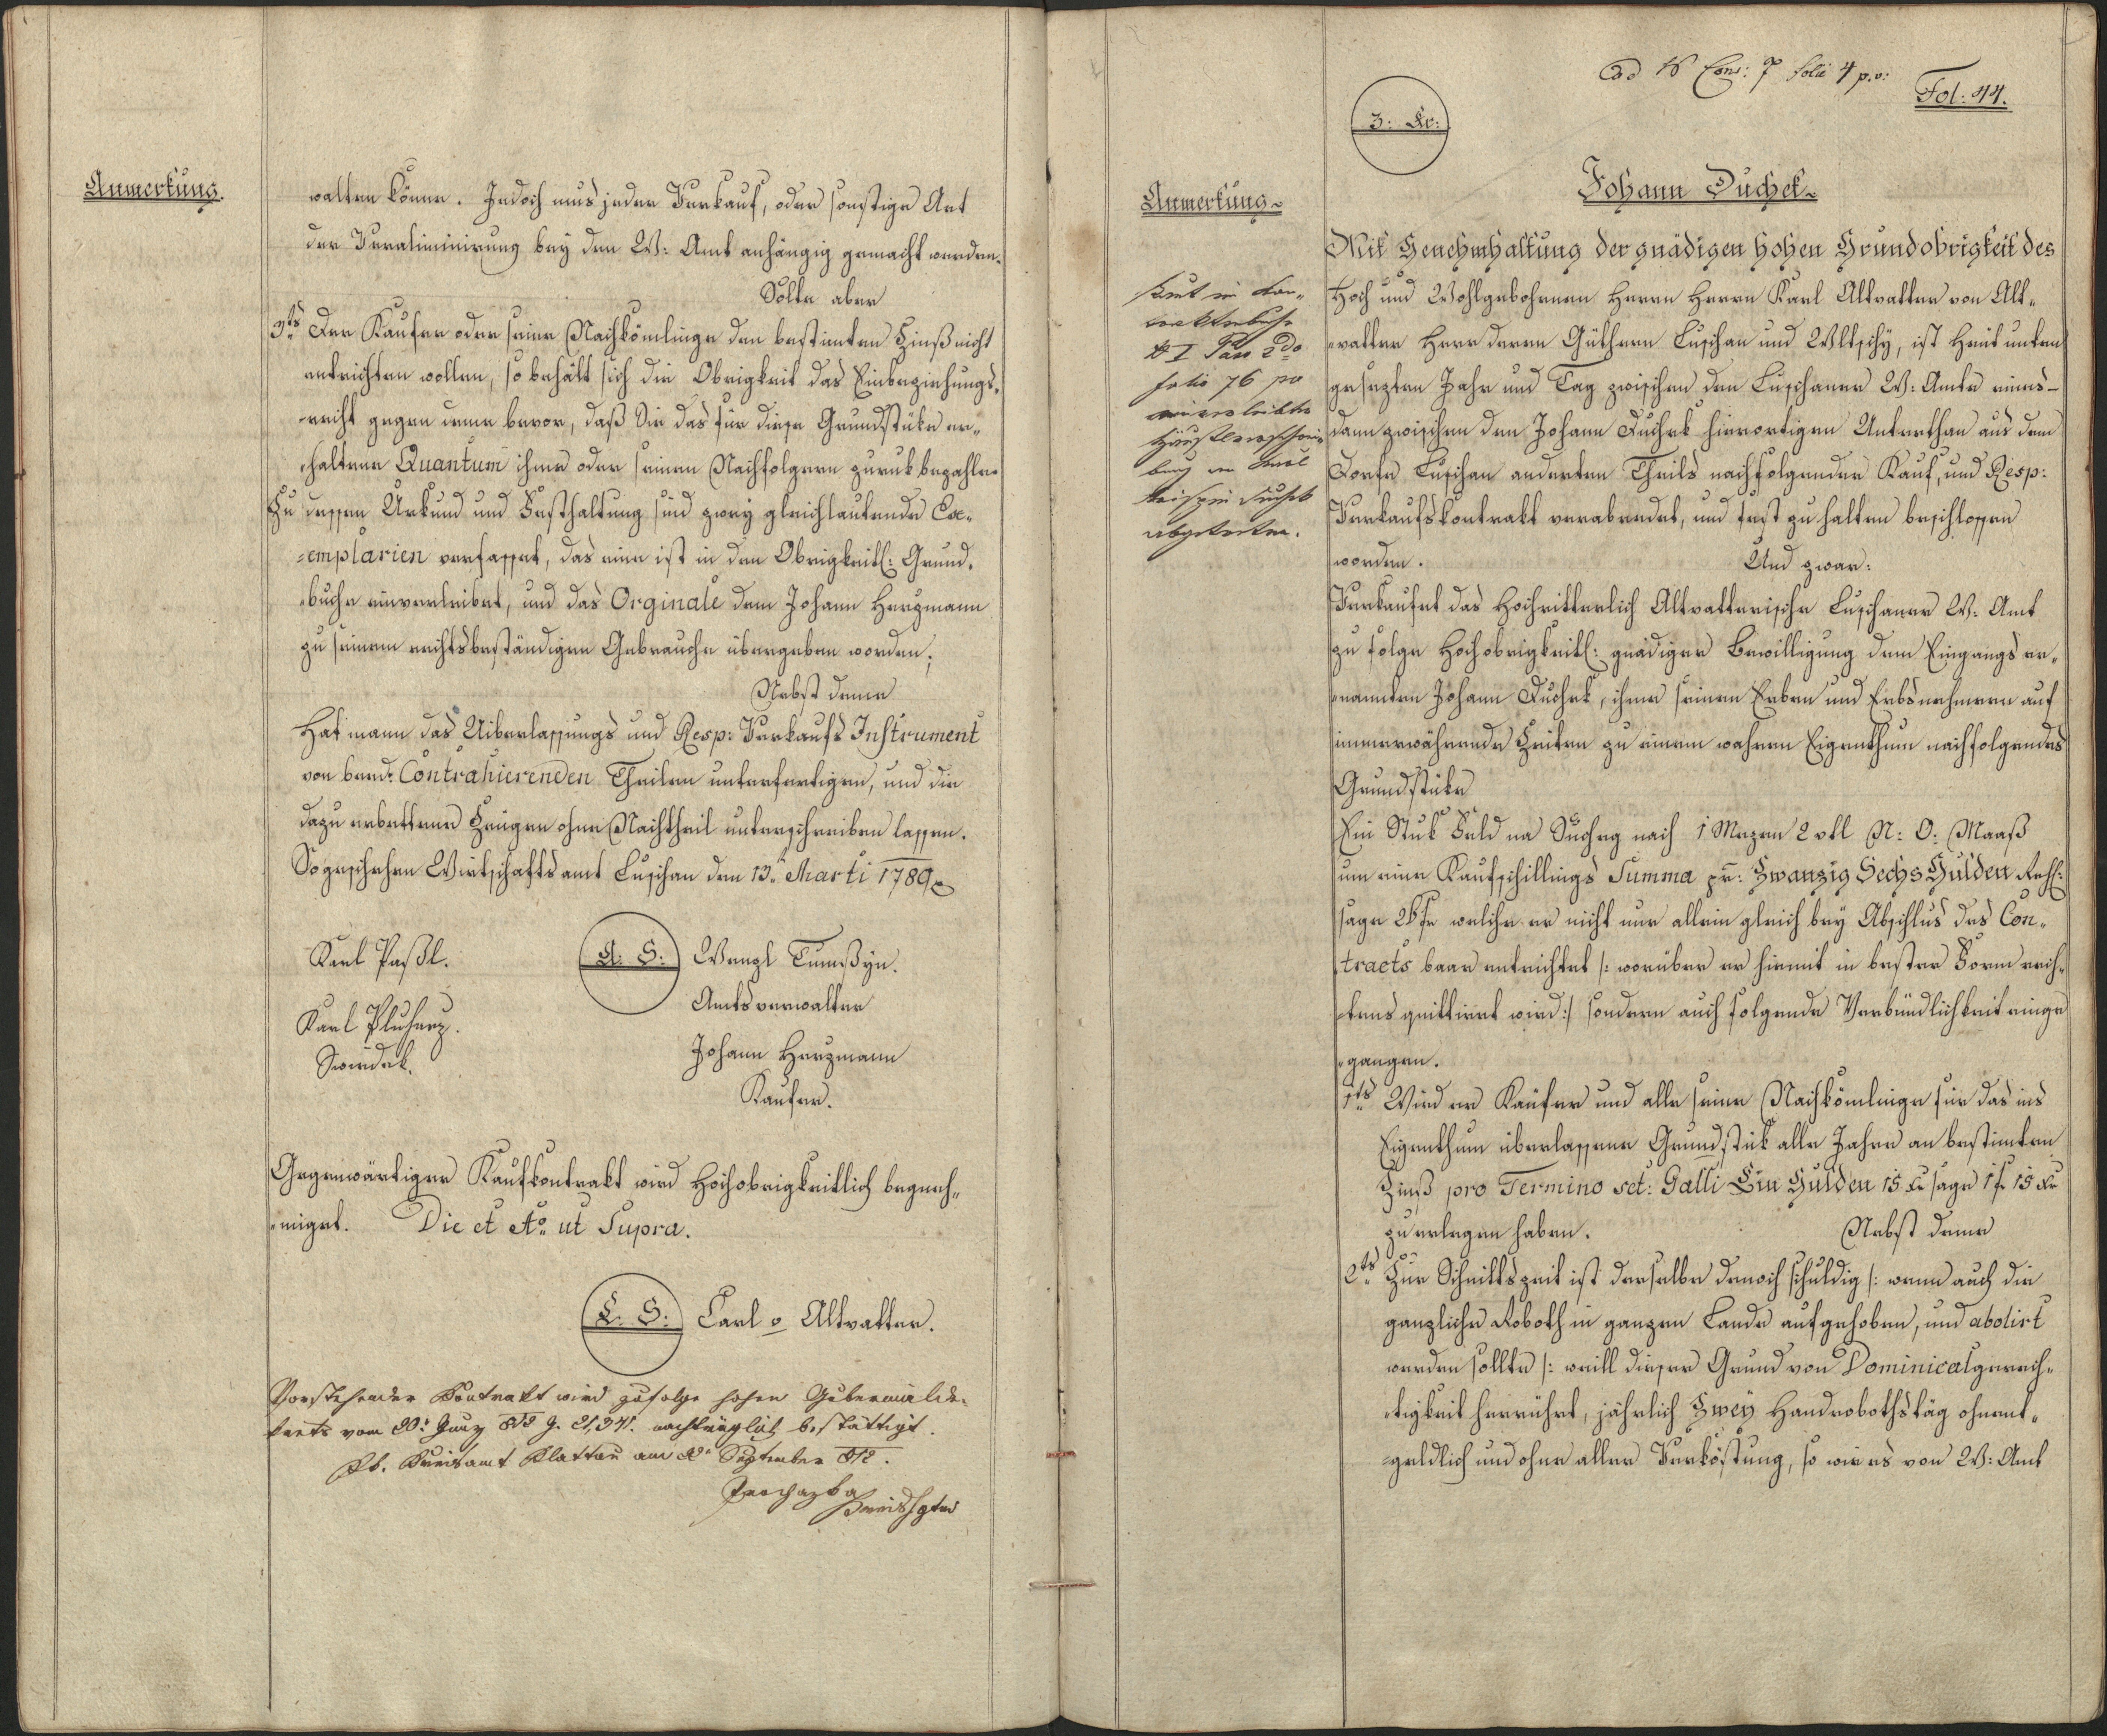 Anmerkung.
walten könne. Jedoch mus jeder Verkauf, oder sonstige Art
der Veraliminirung bey den W: Amt anhängig gemacht werden.
Solte aber
3ts Der Kaufer oder seine Nachkömlinge den bestimten Zinß nicht
entrichten wollen, so behält sich die Obrigkeit das Einbeziehungs„
„recht gegen deme bevor, daß Sie das für diese Grundstüke er„
„haltene Quantum ihme oder seinen Nachfolgern zurük bezahle.
Zu dessen Urkund und Festhaltung sind zwey gleichlautende Ex„
=emplarien verfasset, das eine ist in den Obrigkeitl: Grund„
„buche einverleibet, und das Orginale dem Johann Herzmann
zu seinem rechtsbeständigen Gebrauche übergeben worden;
Nebst deme
Hat mann das Uiberlassungs und Resp: Verkaufs Instrument
von beed: Contrahierenden Theilen unterfertigen, und die
dazu erbettene Zeugen ohne Nachtheil unterschreiben lassen.
So geschehen Wirtschaftsamt Luschan den 13. Marti 1789
Karl Paßl.
L. S. Wenzl Tumßÿn.
Amtsverwalter
Karl Pluharz.
Swirdek.
Johann Herzmann
Kaufer.
Gegenwärtiger Kaufkontrakt wird Hochobrigkeitlich begneh„
„miget. Die et Ao ut Supra.
L. S. Carl v Altvatter.
Vorstehender Kontrakt wird zufolge hohen Gubernialde„
krets vom 20: Juny 812 Z. 21,341. nachträglich bestättigt.
Kk. Kreisamt Klattau am September 812.
Prochazka
Fol: 44.
3: Kr:
Anmerkung
Johann Duchek
Mit Genehmhaltung der gnädigen hohen Grundobrigkeit des
Hoch und Wohlgebohrnen Herrn Herrn Karl Altvatter von Alt„
„vatter Herr deren Güthern Luschan und Wltschÿ, ist Heut unten
gesezten Jahr und Tag zwischen den Luschaner W: Amte eines
dann zwischen den Johann Duchek hierortigen Unterthan aus dem
Dorfe Luschan anderten Theils nachfolgender Kauf, und Resp:
Verkaufskontrakt verabredet, und fest zu halten beschlossen
worden. Und zwar:
Verkaufet das Hochritterlich Altvatterische Luschaner W: Amt
zu folge Hochobrigkeitl: gnädiger Bewilligung dem Eingangs er„
„nannten Johann Duchek, ihme seinen Erben und Erbsnehmern auf
immerwährende Zeiten zu einem wahren Eigenthum nachfolgendes
Grundstüke
Ein Stük Feld na Suchey nach 1 Mezen 2 vtl N: O: Maaß
um eine Kaufschillings Summa pr: Zwanzig Sechs Gulden Rhl:
sage 26 fr welche er nicht nur allein gleich bey Abschlus des Con„
tracts baar entrichtet /: worüber er hiemit in bester Form rech„
„tens quittiret wird :/ sondern auch folgende Verbündlichkeit einge
„gangen.
1ts Wird er Kaufer und alle seine Nachkömlinge für das ins
Eigenthum überlassene Grundstük alle Jahre an bestimten
Zinß pro Termino sct: Galli Ein Gulden 15 Xr sage 1 f 15 Xr
zu erlegen haben. Nebst deme
2ts Zur Schnittszeit ist derselbe dennoch schuldig /: wenn auch die
ganzliche Roboth in ganzen Lande aufgehoben, und abolirt
werden sollte /: weill dieser Grund von Dominicalgerech„
„tigkeit herrührt, jährlich Zwey Handrobothstäg ohnent„
=geldlich und ohne aller Verköstung, so wie es von W: Amt